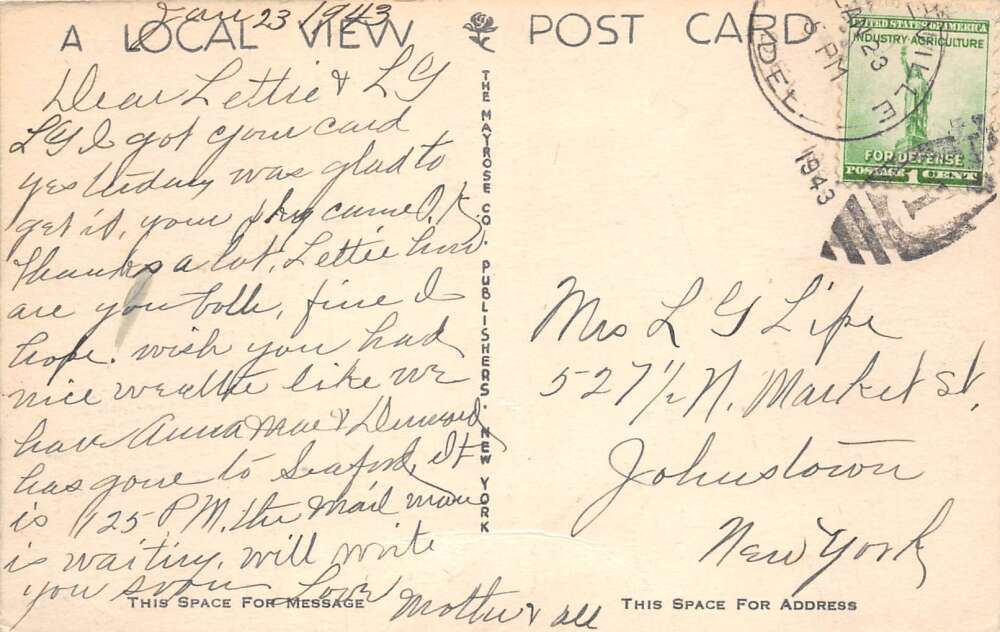 Jan 23 1943
A LOCAL VIEW
POST CARD
Dear Lettie & LG
LG I got your card
yesterday was glad to
get it, your pkg came O.K.
thanks a lot, Lettie how
are you both, fine I
hope. wish you had
nice weather like we
have Anna Mae &
has gone to Seaford, It
is 125 P M, the mail man
is waiting, will write
you soon Love
Mother & all
THIS SPACE FOR MESSAGE
THE MAYROSE CO., PUBLISHERS, NEW YORK
VILLE
DEL.
JAN 23
6 PM
1943
UNITED STATES OF AMERICA
INDUSTRY-AGRICULTURE
FOR DEFENSE
POSTAGE 1 CENT
Mrs L G Lipe
527 1/2 N. Market St.
Johnstown
New York
THIS SPACE FOR ADDRESS